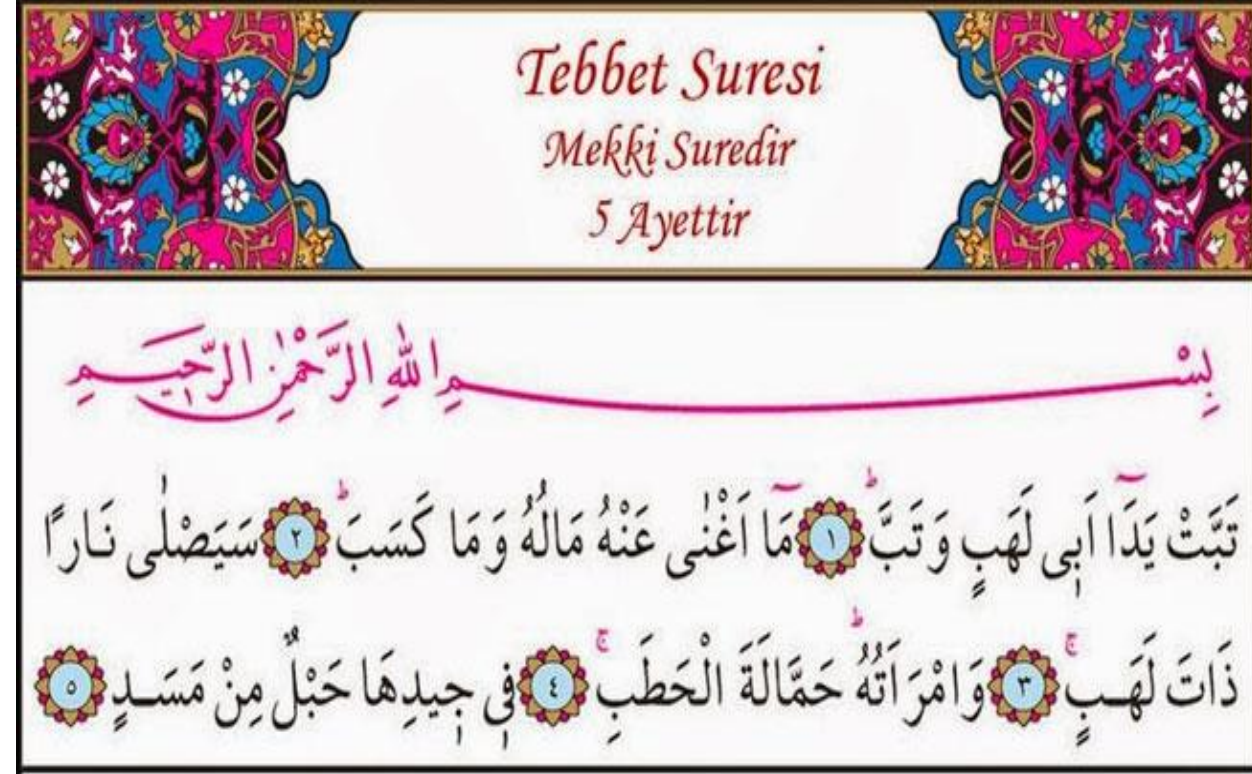 Tebbet Suresi
Mekki Suredir
5 Ayettir
بِسْمِ اللهِ الرَّحْمٰنِ الرَّحٖيمِ
تَبَّتْ يَدَٓا اَبٖى لَهَبٍ وَتَبَّؕ ﴿١﴾ مَٓا اَغْنٰى عَنْهُ مَالُهُ وَمَا كَسَبَؕ ﴿٢﴾ سَيَصْلٰى نَارًا
ذَاتَ لَهَبٍۚ ﴿٣﴾ وَامْرَاَتُهُؕ حَمَّالَةَ الْحَطَبِۚ ﴿٤﴾ فٖى جٖيدِهَا حَبْلٌ مِنْ مَسَدٍ ﴿٥﴾